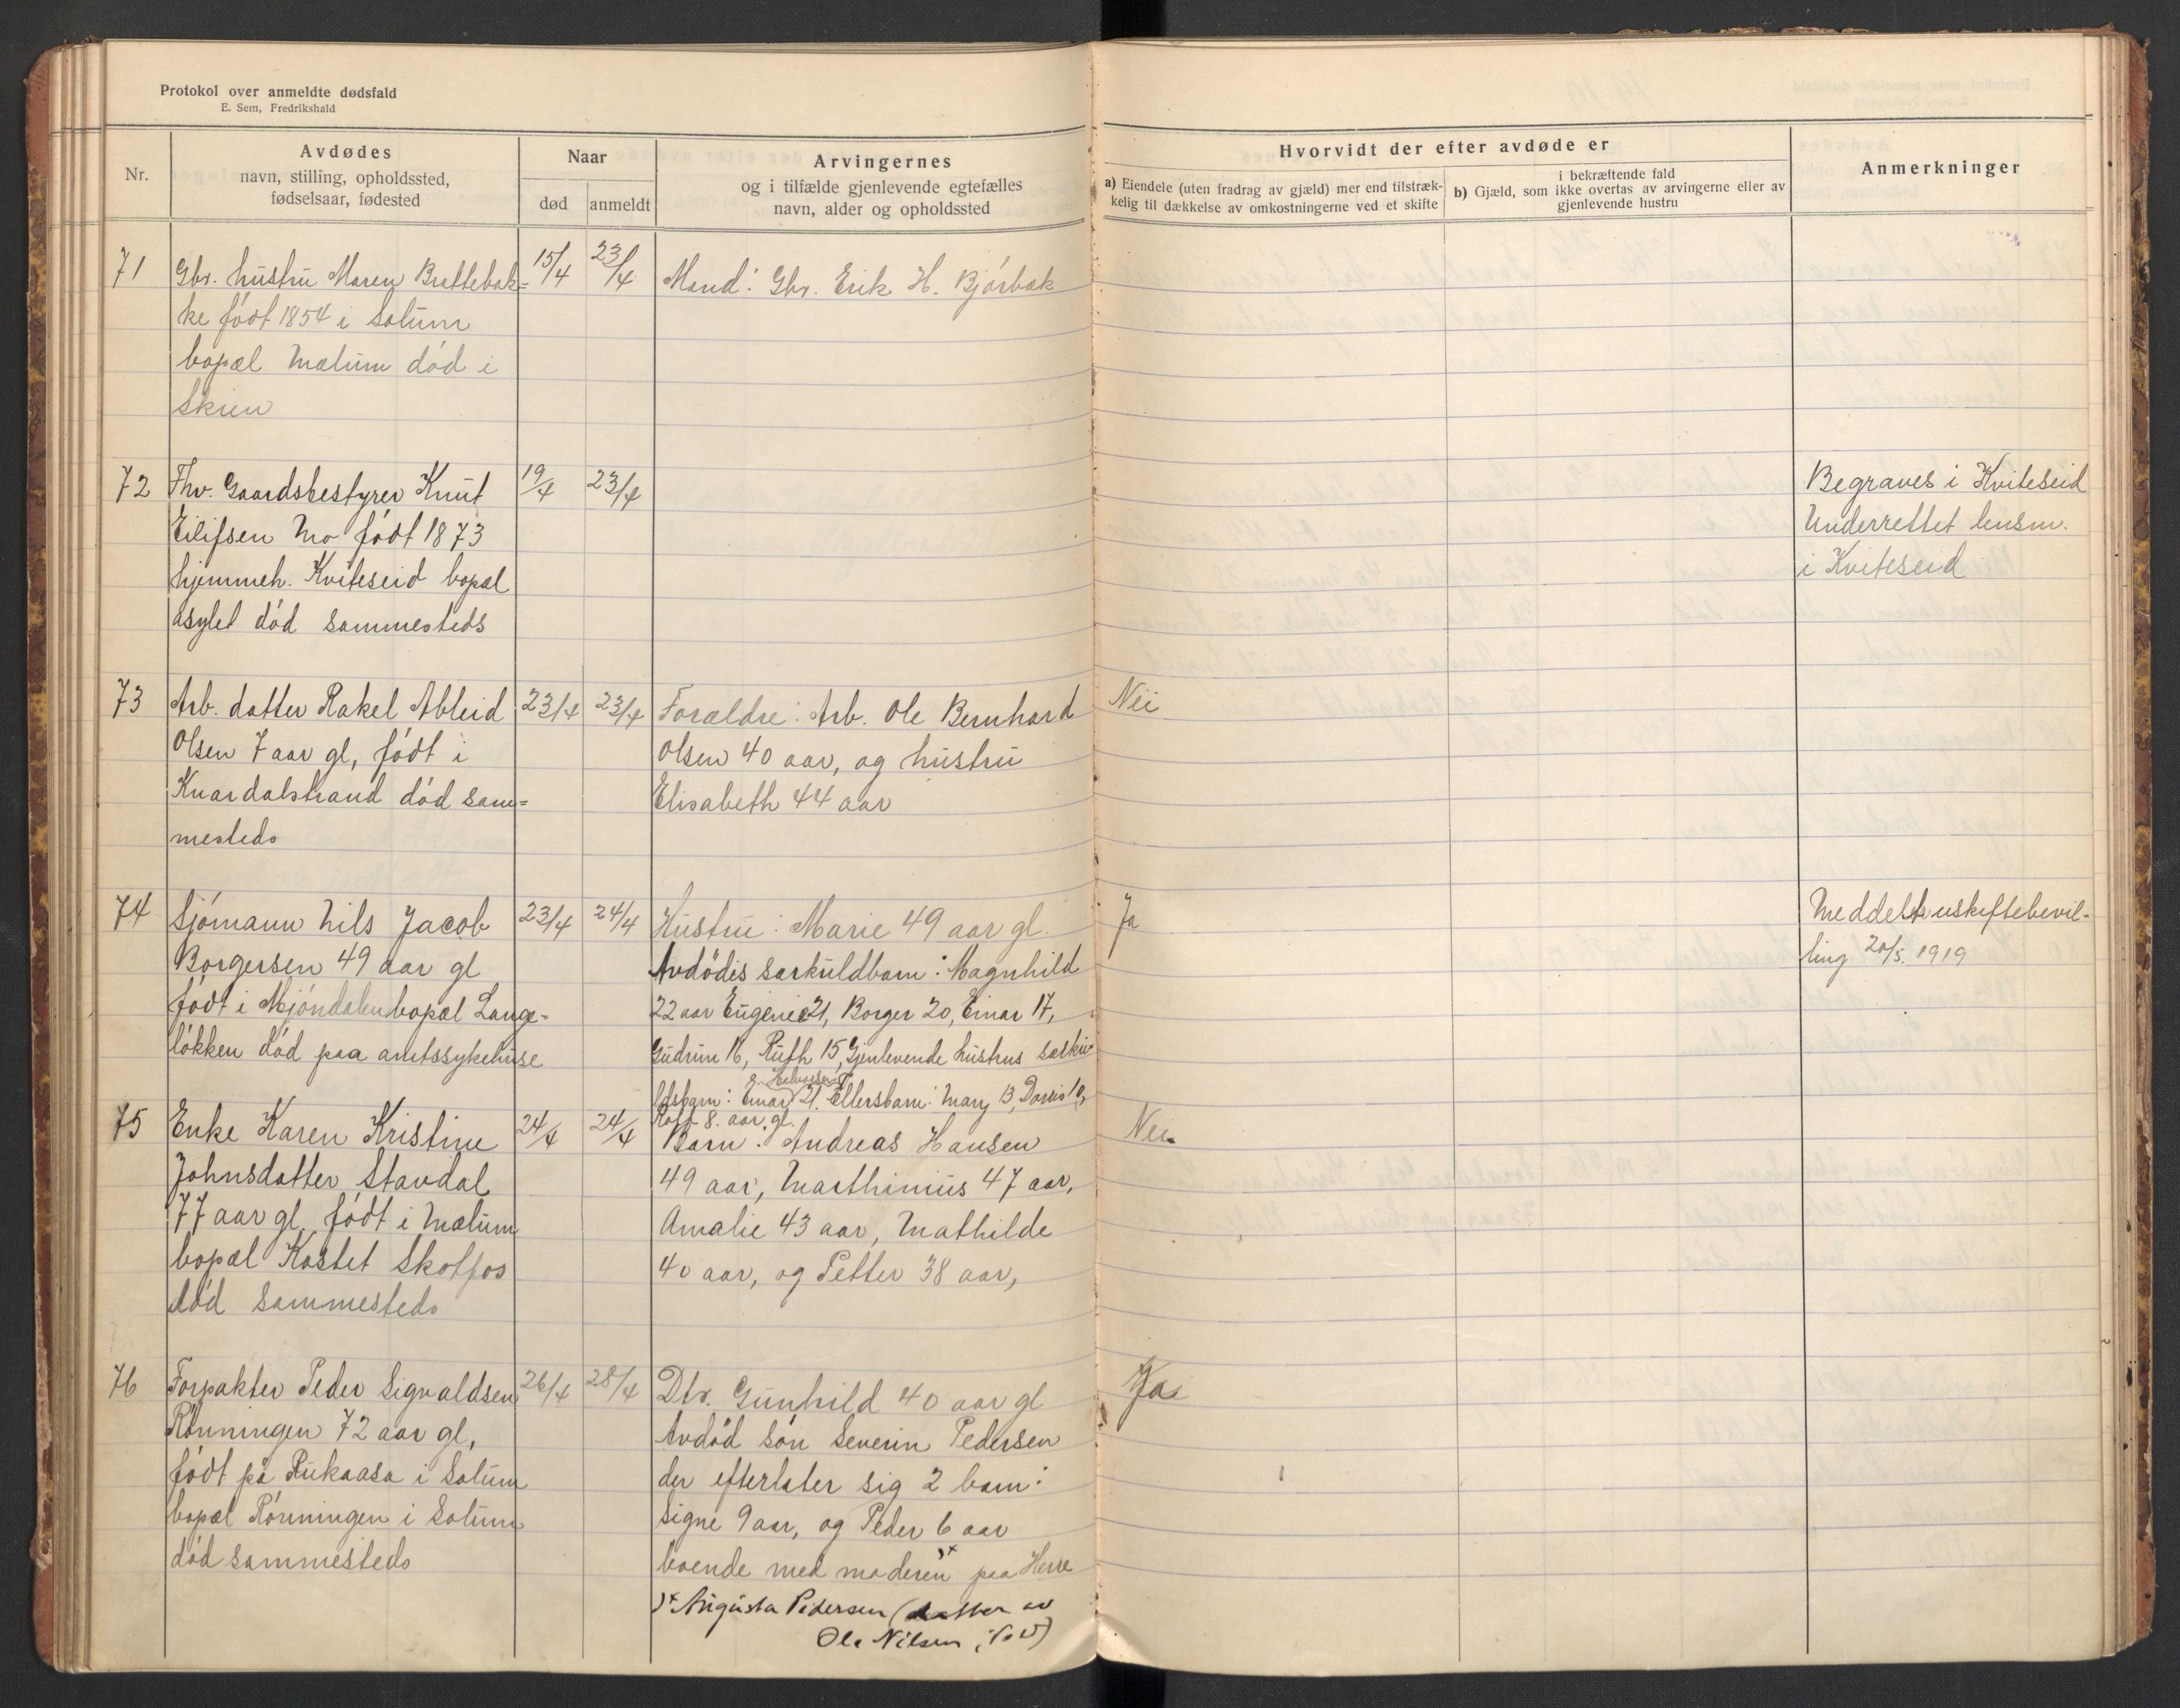 Protokol over anmeldte dødsfald
E. Sem, Fredrikshald
Nr.
Avdødes
navn, stilling, opholdssted,
fødselsaar, fødested
Naar
død
anmeldt
Arvingernes
og i tilfælde gjenlevende egtefælles
navn, alder og opholdssted
Hvorvidt der efter avdøde er
a) Eiendele (uten fradrag av gjæld) mer end tilstræk-
kelig til dækkelse av omkostningerne ved et skifte
i bekræftende fald
b) Gjæld, som ikke overtas av arvingerne eller av
gjenlevende hustru
Anmerkninger
71
Gbr. hustru Maren Brattebak=
ke født 1854 i Solum
bopæl Mælum død i
Skien
15/4
23/4
Mand: Gbr. Erik H. Bjørbak
72
Fhv. Gaardsbestyrer Knut
Eilifsen Mo født 1873
hjemmeh. Kviteseid bopæl
asylet død sammesteds
19/4
23/4
Begraves i Kviteseid
Underrettet lensm.
i Kviteseid
73
Arb. datter Rakel Ableid
Olsen 7 aar gl, født i
Knardalstrand død sam=
mesteds
23/4
23/4
Forældre: Arb. Ole Bernhard
Olsen 40 aar, og hustru
Elisabeth 44 aar
Nei
74
Sjømann Nils Jacob
Borgersen 49 aar gl
født i Mjøndalen bopæl Lange=
løkken død paa amtssykehuse
23/4
24/4
Hustru: Marie 49 aar gl.
Avdødes særkuldbarn: Magnhild
22 aar Eugenie 21, Borger 20, Einar 17,
Gudrun 16, Ruth 15, Gjenlevende hustrus særku
E. Halvorsen
ldsbarn: Einar 21. Ellersbarn: Mary 13, Dorris 10,
Rolf 8. aar gl.
Ja
Meddelt uskiftebevil-
ling 20/5. 1919
75
Enke Karen Kristine
Johnsdatter Stavdal
77 aar gl. født i Mælum
bopæl Kastet Skotfos
død sammesteds
24/4
24/4
Barn: Andreas Hansen
49 aar, Marthinius 47 aar,
Amalie 43 aar, Mathilde
40 aar, og Petter 38 aar,
Nei
76
Forpakter Peder Sigvaldsen
Rønningen 72 aar gl,
født på Rukaasa i Solum
bopæl Rønningen i Solum
død sammesteds
26/4
28/4
Dtr. Gunhild 40 aar gl
Avdød søn Severin Pedersen
der efterlater sig 2 barn:
Signe 9 aar, og Peder 6 aar
boende med moderen )x paa Herre
)x Augusta Pedersen (datter av
Ole Nilsen,
Ja